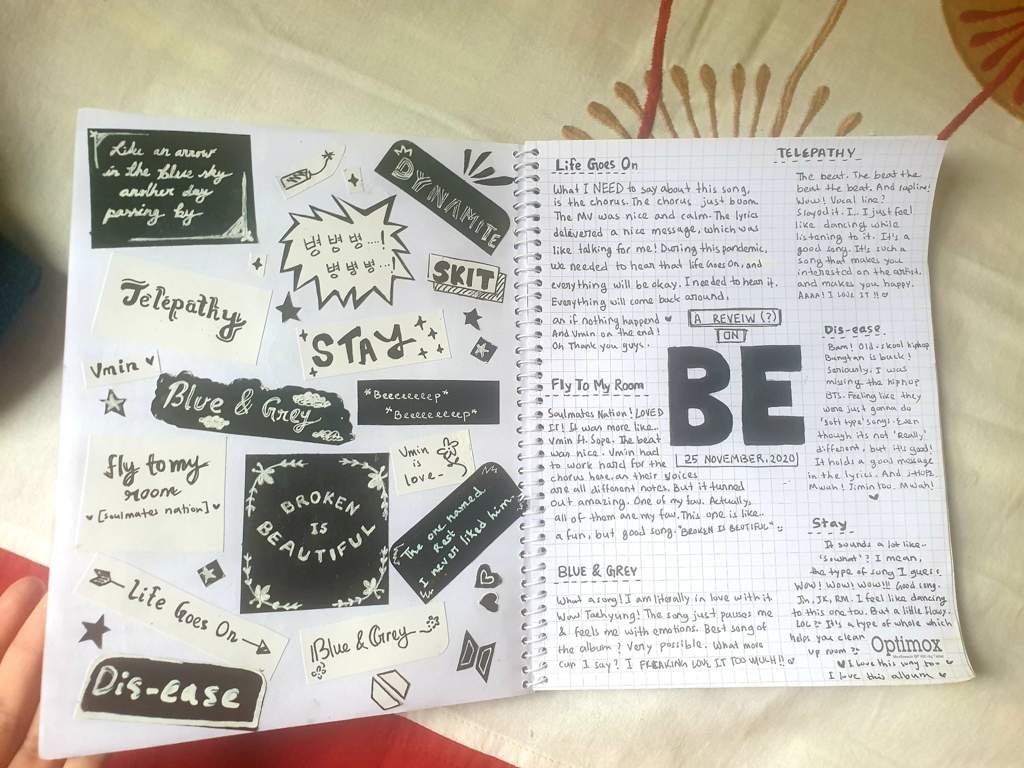 Like an arrow
in the blue sky
another day
passing by
DYNAMITE
병병병....!
병병병...!
SKIT
Telepathy
STAY
Vmin
Blue & Grey
*Beeeeeeeep*
*Beeeeeeeep*
fly to my
room
[soulmates nation]
Vmin
is
love~
BROKEN
IS
BEAUTIFUL
The one named,
Rest
I never liked him.
Life Goes On
Blue & Grey
Dis-ease
Life Goes On
What I NEED to say about this song,
is the chorus. The chorus just boom.
The MV was nice and calm. The lyrics
delivered a nice message, which was
like talking for me! During this pandemic,
we needed to hear that life Goes On, and
everything will be okay. I needed to hear it.
Everything will come back around,
an if nothing happend
And Vmin on the end!
Oh Thank you guys.
Fly To My Room
Soulmates Nation! LOVED
IT! It was more like..
Vmin ft. Sope. The beat
was nice. Vmin had
to work hard for the
chorus here, as their voices
are all different notes. But it turned
out amazing. One of my fav. Actually,
all of them are my fav. This one is like..
a fun, but good song. "BROKEN IS BEUTIFUL"
BLUE & GREY
What a song! I am literally in love with it
Wow Taehyung! The song just pauses me
& feels me with emotions. Best song of
the album? Very possible. What more
can I say? I FREAKING LOVE IT TOO MUCH!!
A REVEIW (?)
ON
BE
25 NOVEMBER, 2020
TELEPATHY
The beat. The beat the
beat the beat. And rapline!
Wow! Vocal line?
Slayed it. I.. I just feel
like dancing while
listening to it. It's a
good song. It's such a
song that makes you
interested on the artist.
and makes you happy.
AAAA! I LOVE IT!!
Dis-ease
Bam! Old-skool hiphop
Bangtan is back!
Seriously, I was
missing the hiphop
BTS. Feeling like they
were just gonna do
'soft type' songs. Even
though its not 'Really'
different, but it's good!
It holds a good message
in the lyrics. And J-HOPE
Mwah! Jimin too. Mwah!
Stay
It sounds a lot like..
'so what'? I mean,
the type of song I guess.
Wow! Wow! Wow!!! Good song.
Jin, JK, RM. I feel like dancing
to this one too. But a little slowy.
LOL? It's a type of whole which
helps you clean
up room ?
Optimox
I love this song too
I love this album